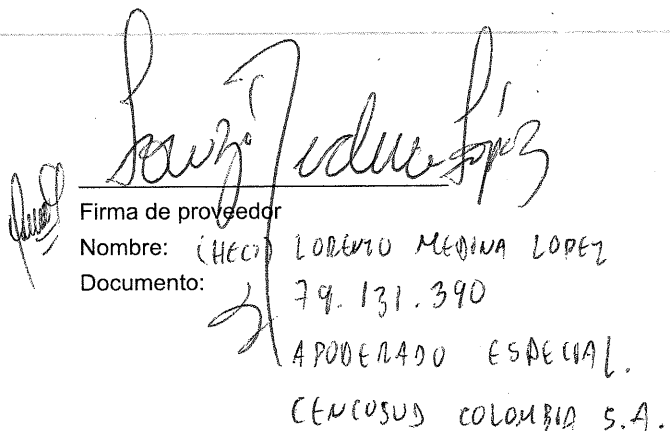 Lorenzo Medina López
Firma de proveedor
Nombre: (HECI) LORENZO MEDINA LOPEZ
Documento: 79.131.390
APODERADO ESPECIAL.
CENCOSUD COLOMBIA S.A.